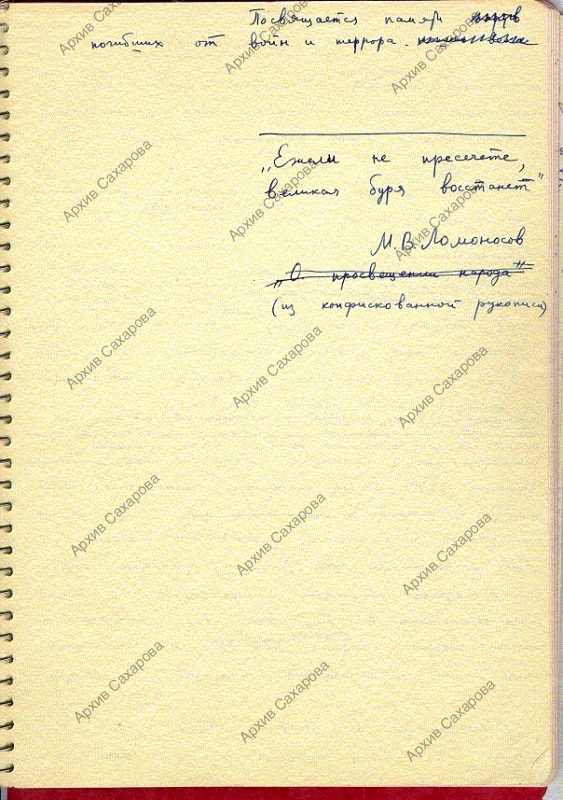 Посвящается памяти
погибших от войн и террора.
„Ежели не пресечете,
великая буря восстанет"
М. В. Ломоносов
„О просвещении народа"
(из конфискованной рукописи)
Архив Сахарова
Архив Сахарова
Архив Сахарова
Архив Сахарова
Архив Сахарова
Архив Сахарова
Архив Сахарова
Архив Сахарова
Архив Сахарова
Архив Сахарова
Архив Сахарова
Архив Сахарова
Архив Сахарова
Архив Сахарова
Архив Сахарова